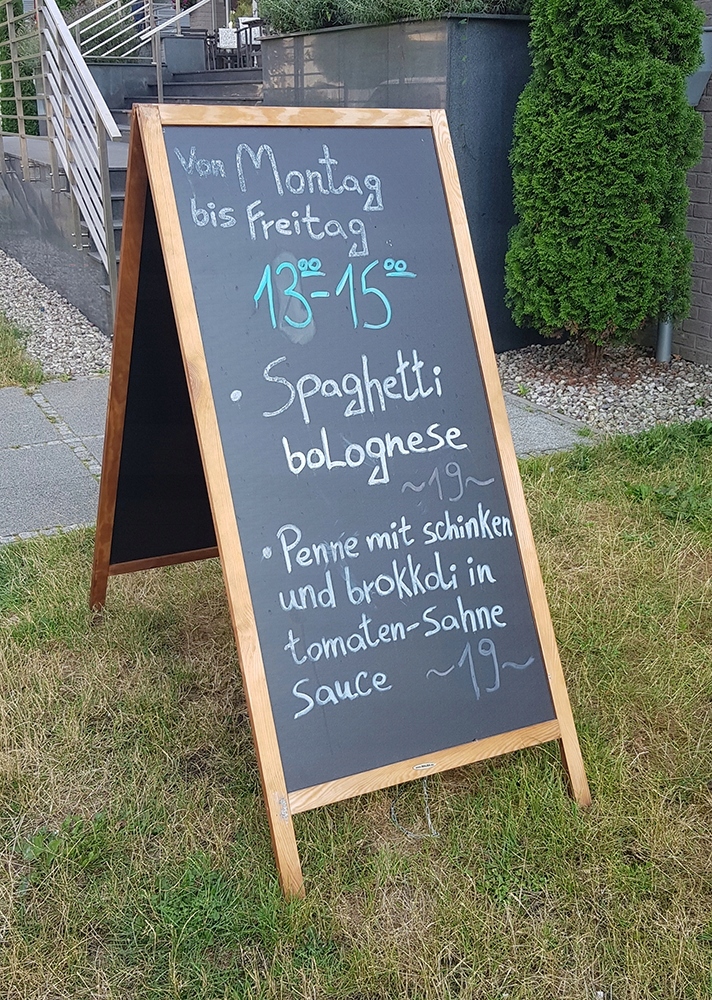 Von Montag
bis Freitag
13⁰⁰-15⁰⁰
• Spaghetti
boLognese
~19~
• Penne mit schinken
und brokkoli in
tomaten-Sahne
Sauce ~19~